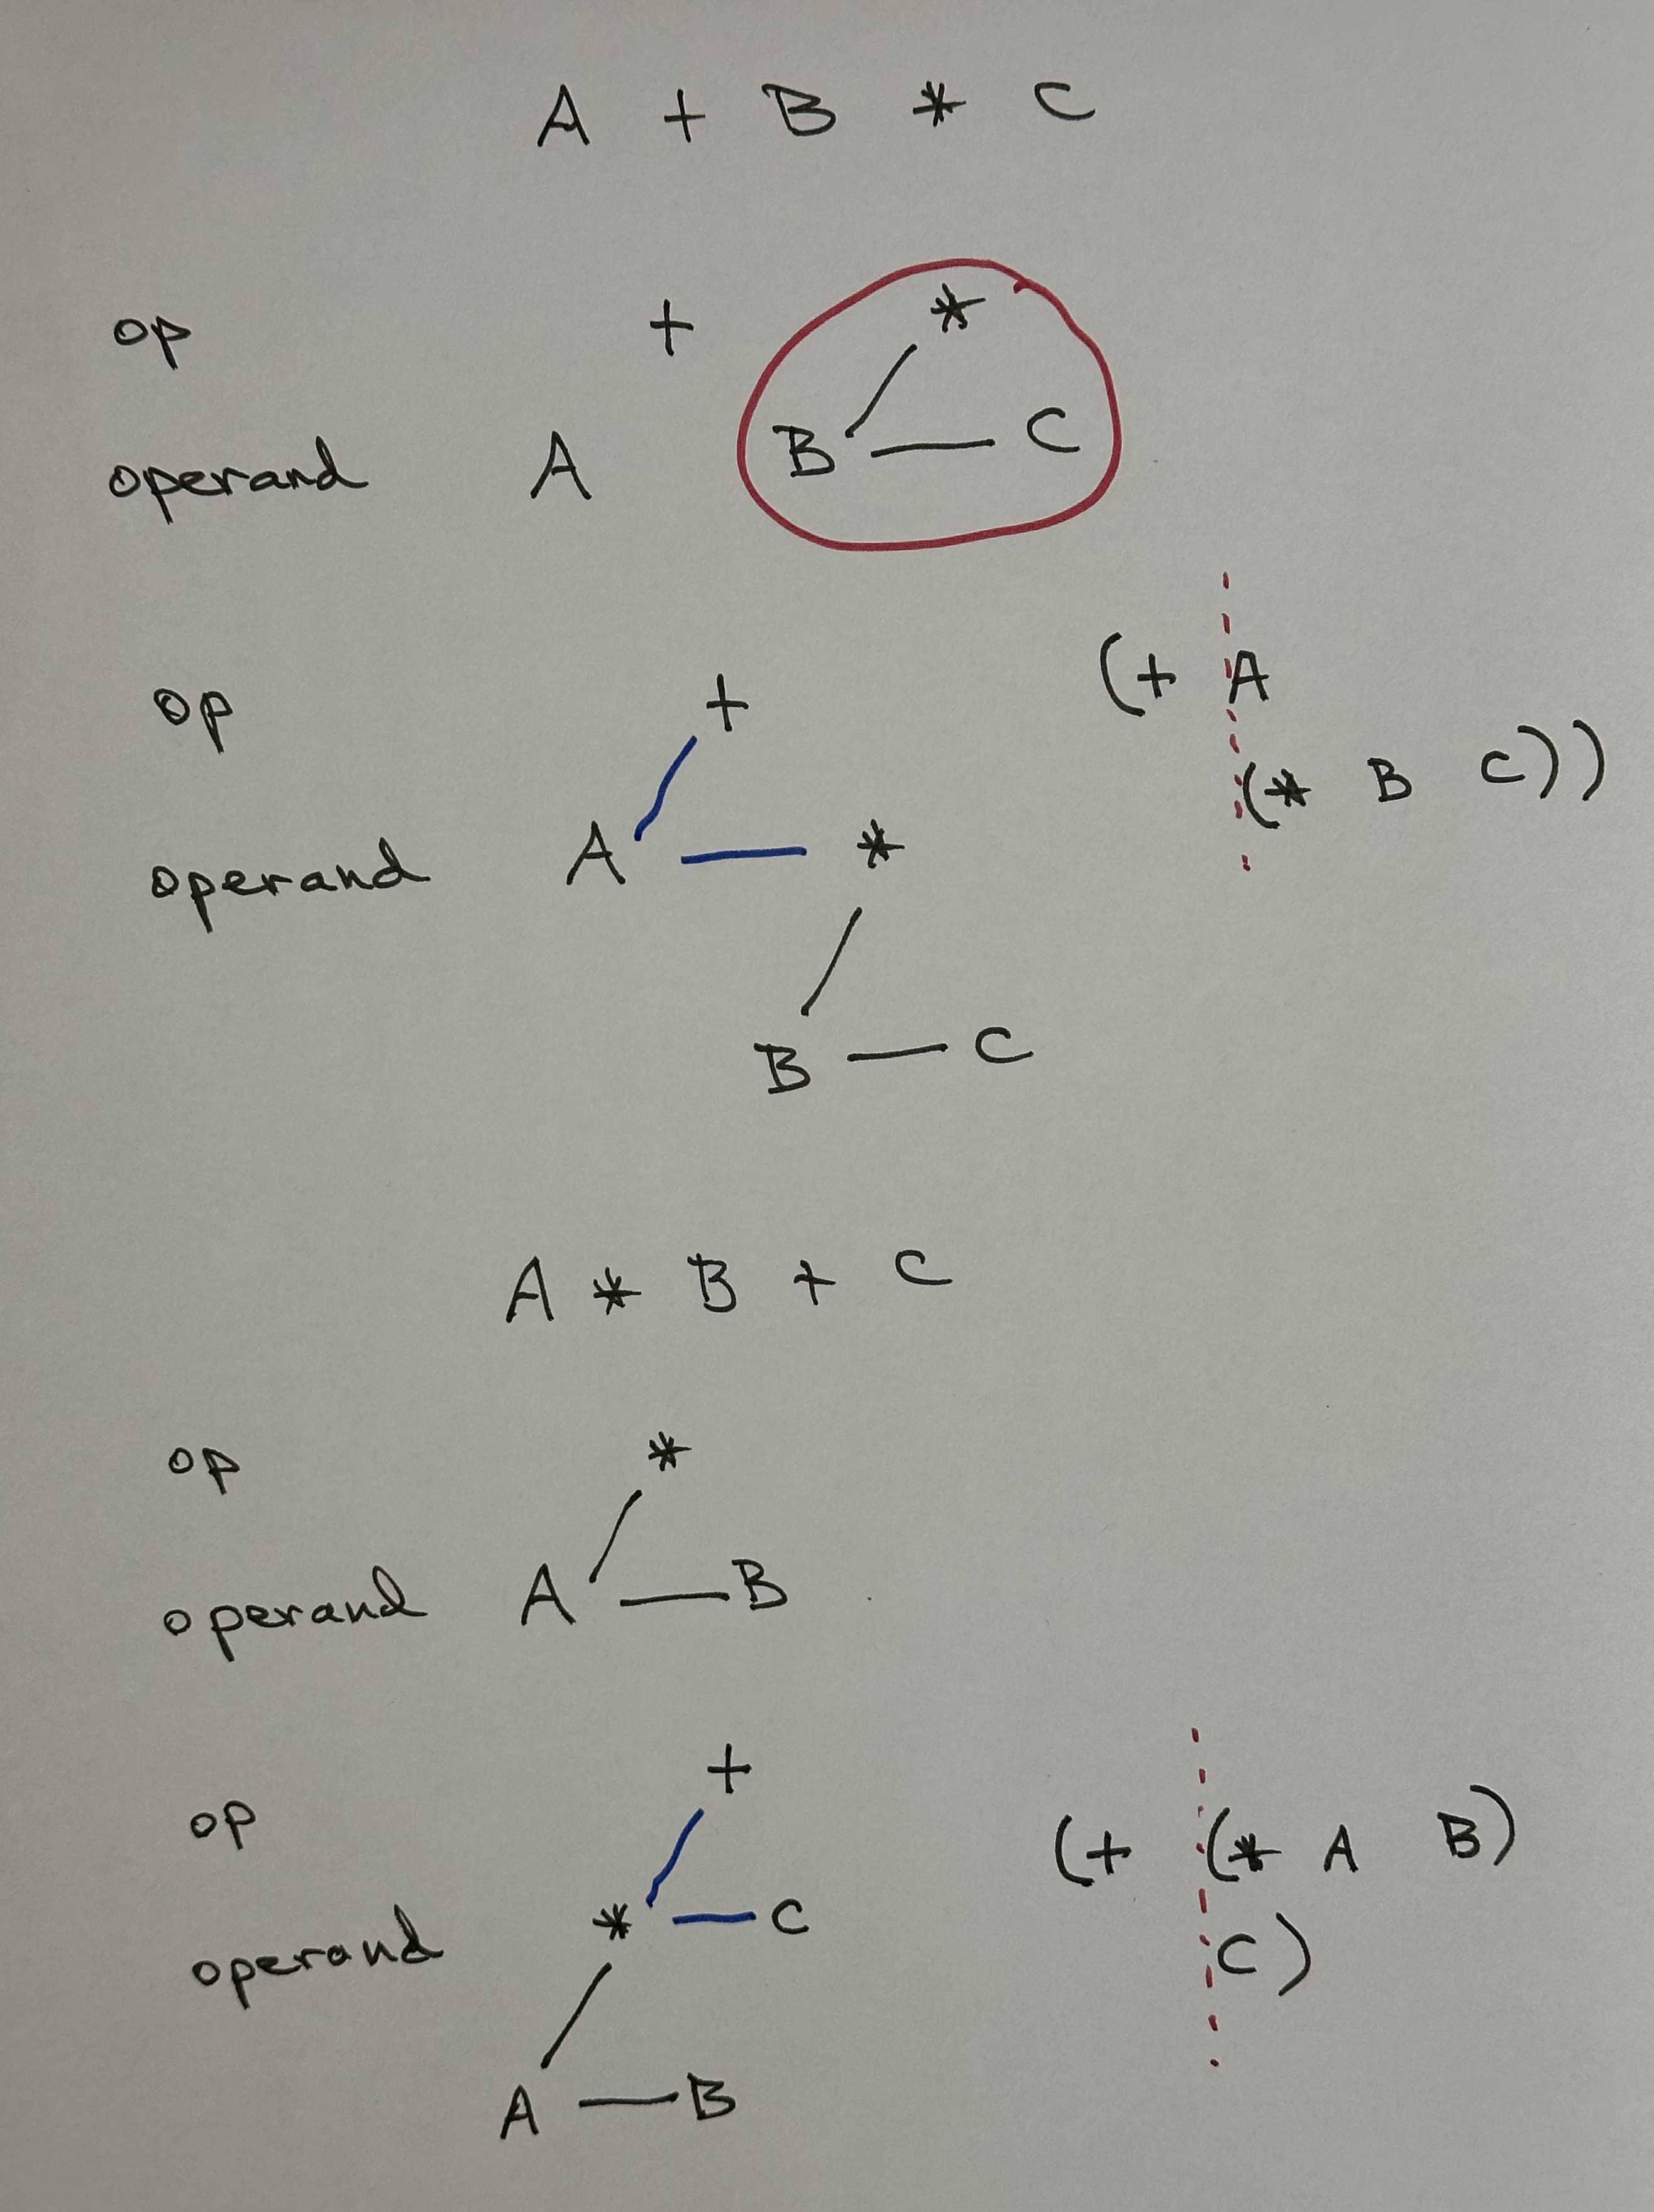 A + B * C
op + *
operand A B C
(+ A
op +
(* B C))
operand A *
B C
A * B + C
op *
operand A B
+
op (+ (* A B)
* C
operand C)
A B